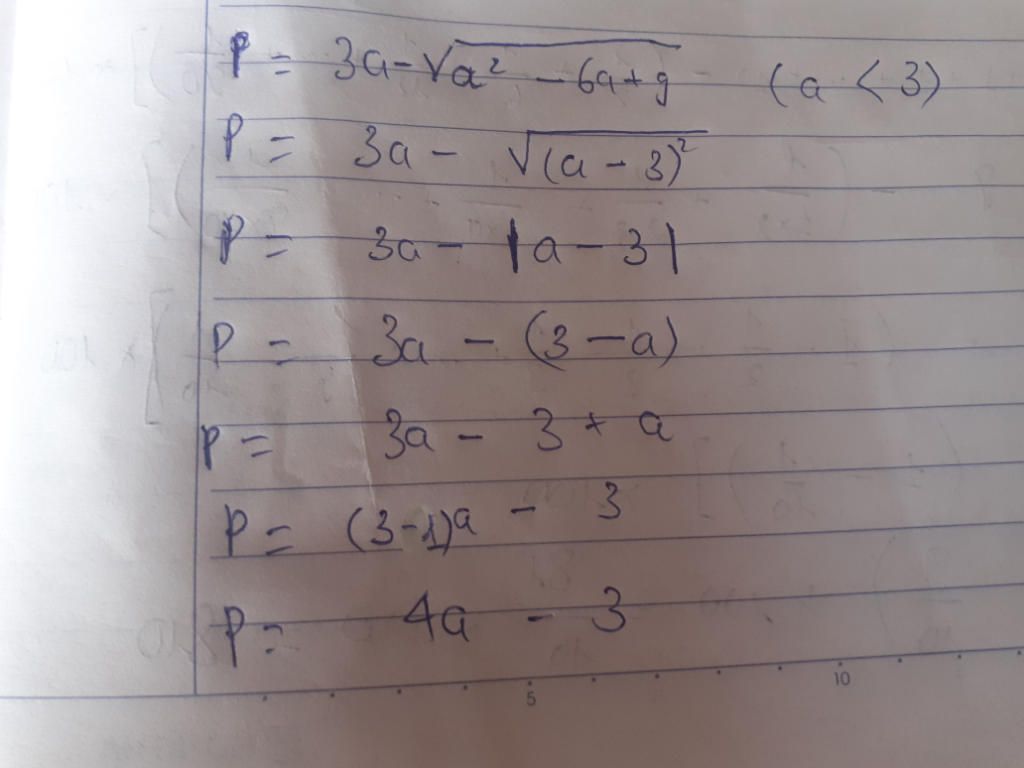 P = 3a - √(a² - 6a + 9) (a < 3)
P = 3a - √((a - 3)²)
P = 3a - |a - 3|
P = 3a - (3 - a)
P = 3a - 3 + a
P = (3 - 1)a - 3
P = 4a - 3
5 10